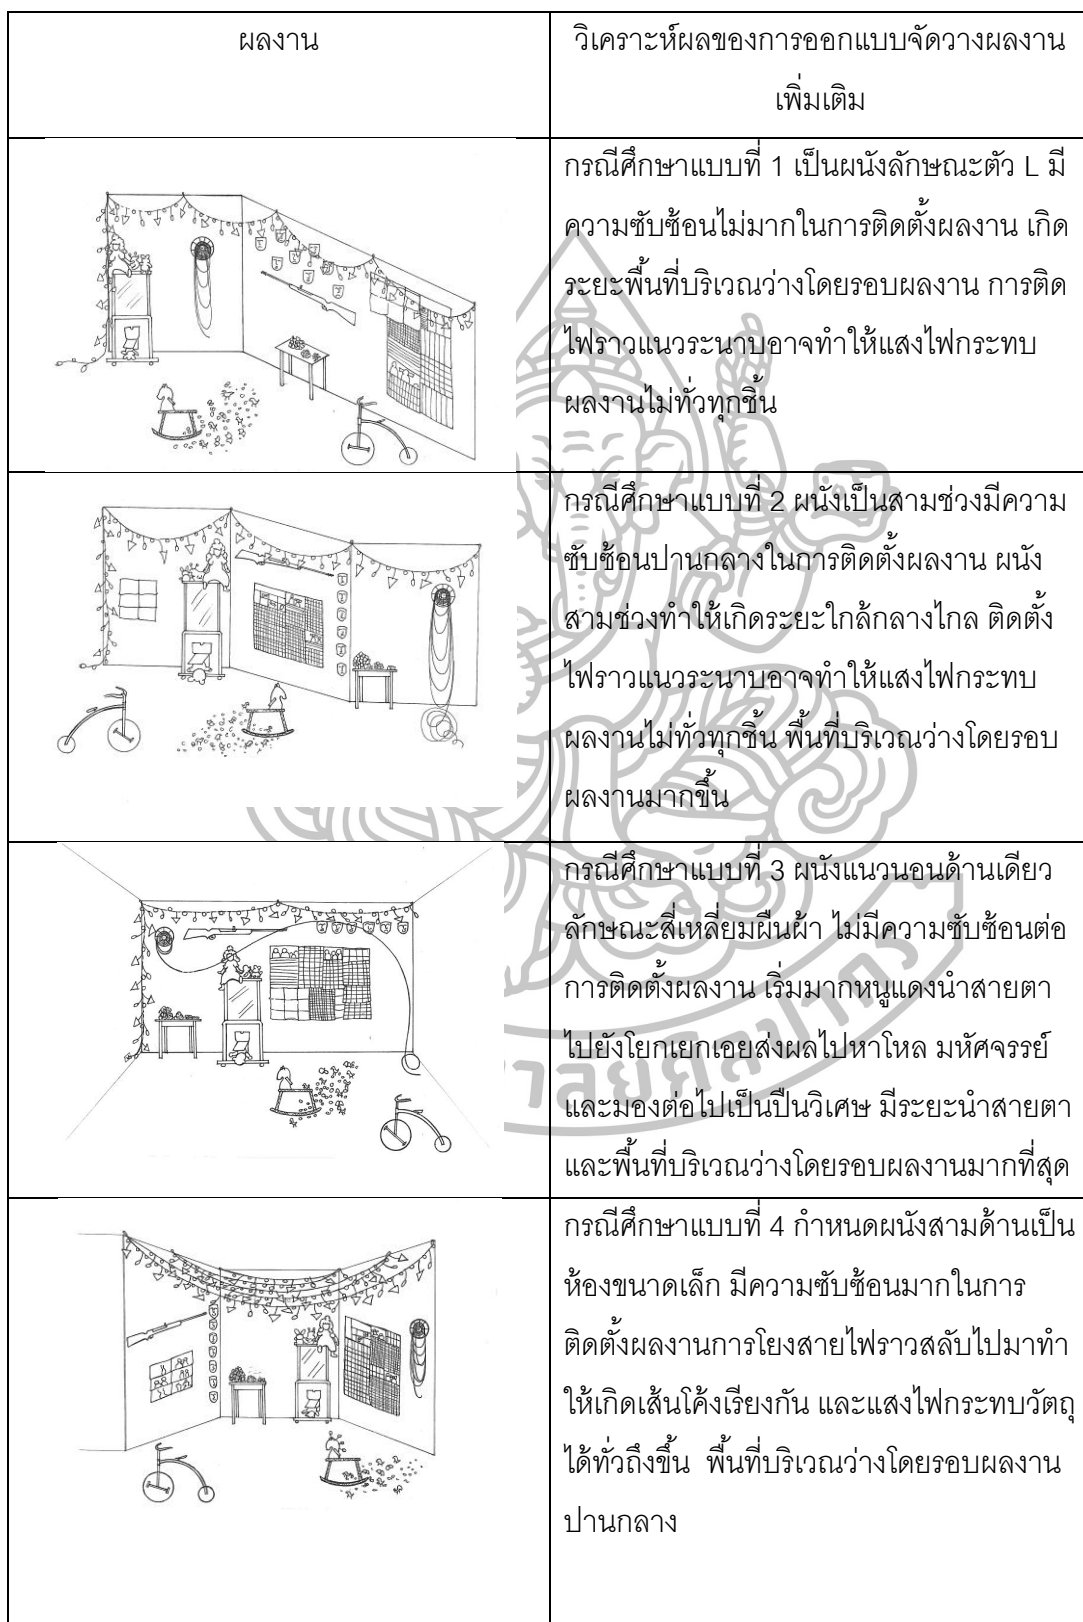 ผลงาน
วิเคราะห์ผลของการออกแบบจัดวางผลงาน
เพิ่มเติม
กรณีศึกษาแบบที่ 1 เป็นผนังลักษณะตัว L มี
ความซับซ้อนไม่มากในการติดตั้งผลงาน เกิด
ระยะพื้นที่บริเวณว่างโดยรอบผลงาน การติด
ไฟราวแนวระนาบอาจทำให้แสงไฟกระทบ
ผลงานไม่ทั่วทุกชิ้น
กรณีศึกษาแบบที่ 2 ผนังเป็นสามช่วงมีความ
ซับซ้อนปานกลางในการติดตั้งผลงาน ผนัง
สามช่วงทำให้เกิดระยะใกล้กลางไกล ติดตั้ง
ไฟราวแนวระนาบอาจทำให้แสงไฟกระทบ
ผลงานไม่ทั่วทุกชิ้น พื้นที่บริเวณว่างโดยรอบ
ผลงานมากขึ้น
กรณีศึกษาแบบที่ 3 ผนังแนวนอนด้านเดียว
ลักษณะสี่เหลี่ยมผืนผ้า ไม่มีความซับซ้อนต่อ
การติดตั้งผลงาน เริ่มมากหนูแดงนำสายตา
ไปยังโยกเยกเอยส่งผลไปหาโหล มหัศจรรย์
และมองต่อไปเป็นปืนวิเศษ มีระยะนำสายตา
และพื้นที่บริเวณว่างโดยรอบผลงานมากที่สุด
กรณีศึกษาแบบที่ 4 กำหนดผนังสามด้านเป็น
ห้องขนาดเล็ก มีความซับซ้อนมากในการ
ติดตั้งผลงานการโยงสายไฟราวสลับไปมาทำ
ให้เกิดเส้นโค้งเรียงกัน และแสงไฟกระทบวัตถุ
ได้ทั่วถึงขึ้น พื้นที่บริเวณว่างโดยรอบผลงาน
ปานกลาง